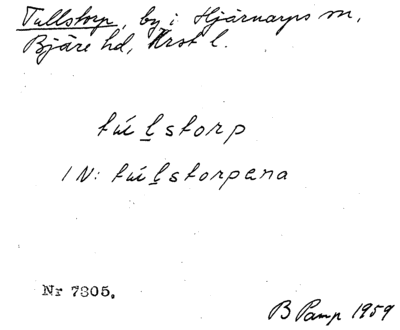 Tullstorp, by i Hjärnarps sn,
Bjäre hd, Krst l.
túl̲storp
IN: túl̲storpana
Nr 7305.
B Pamp 1959